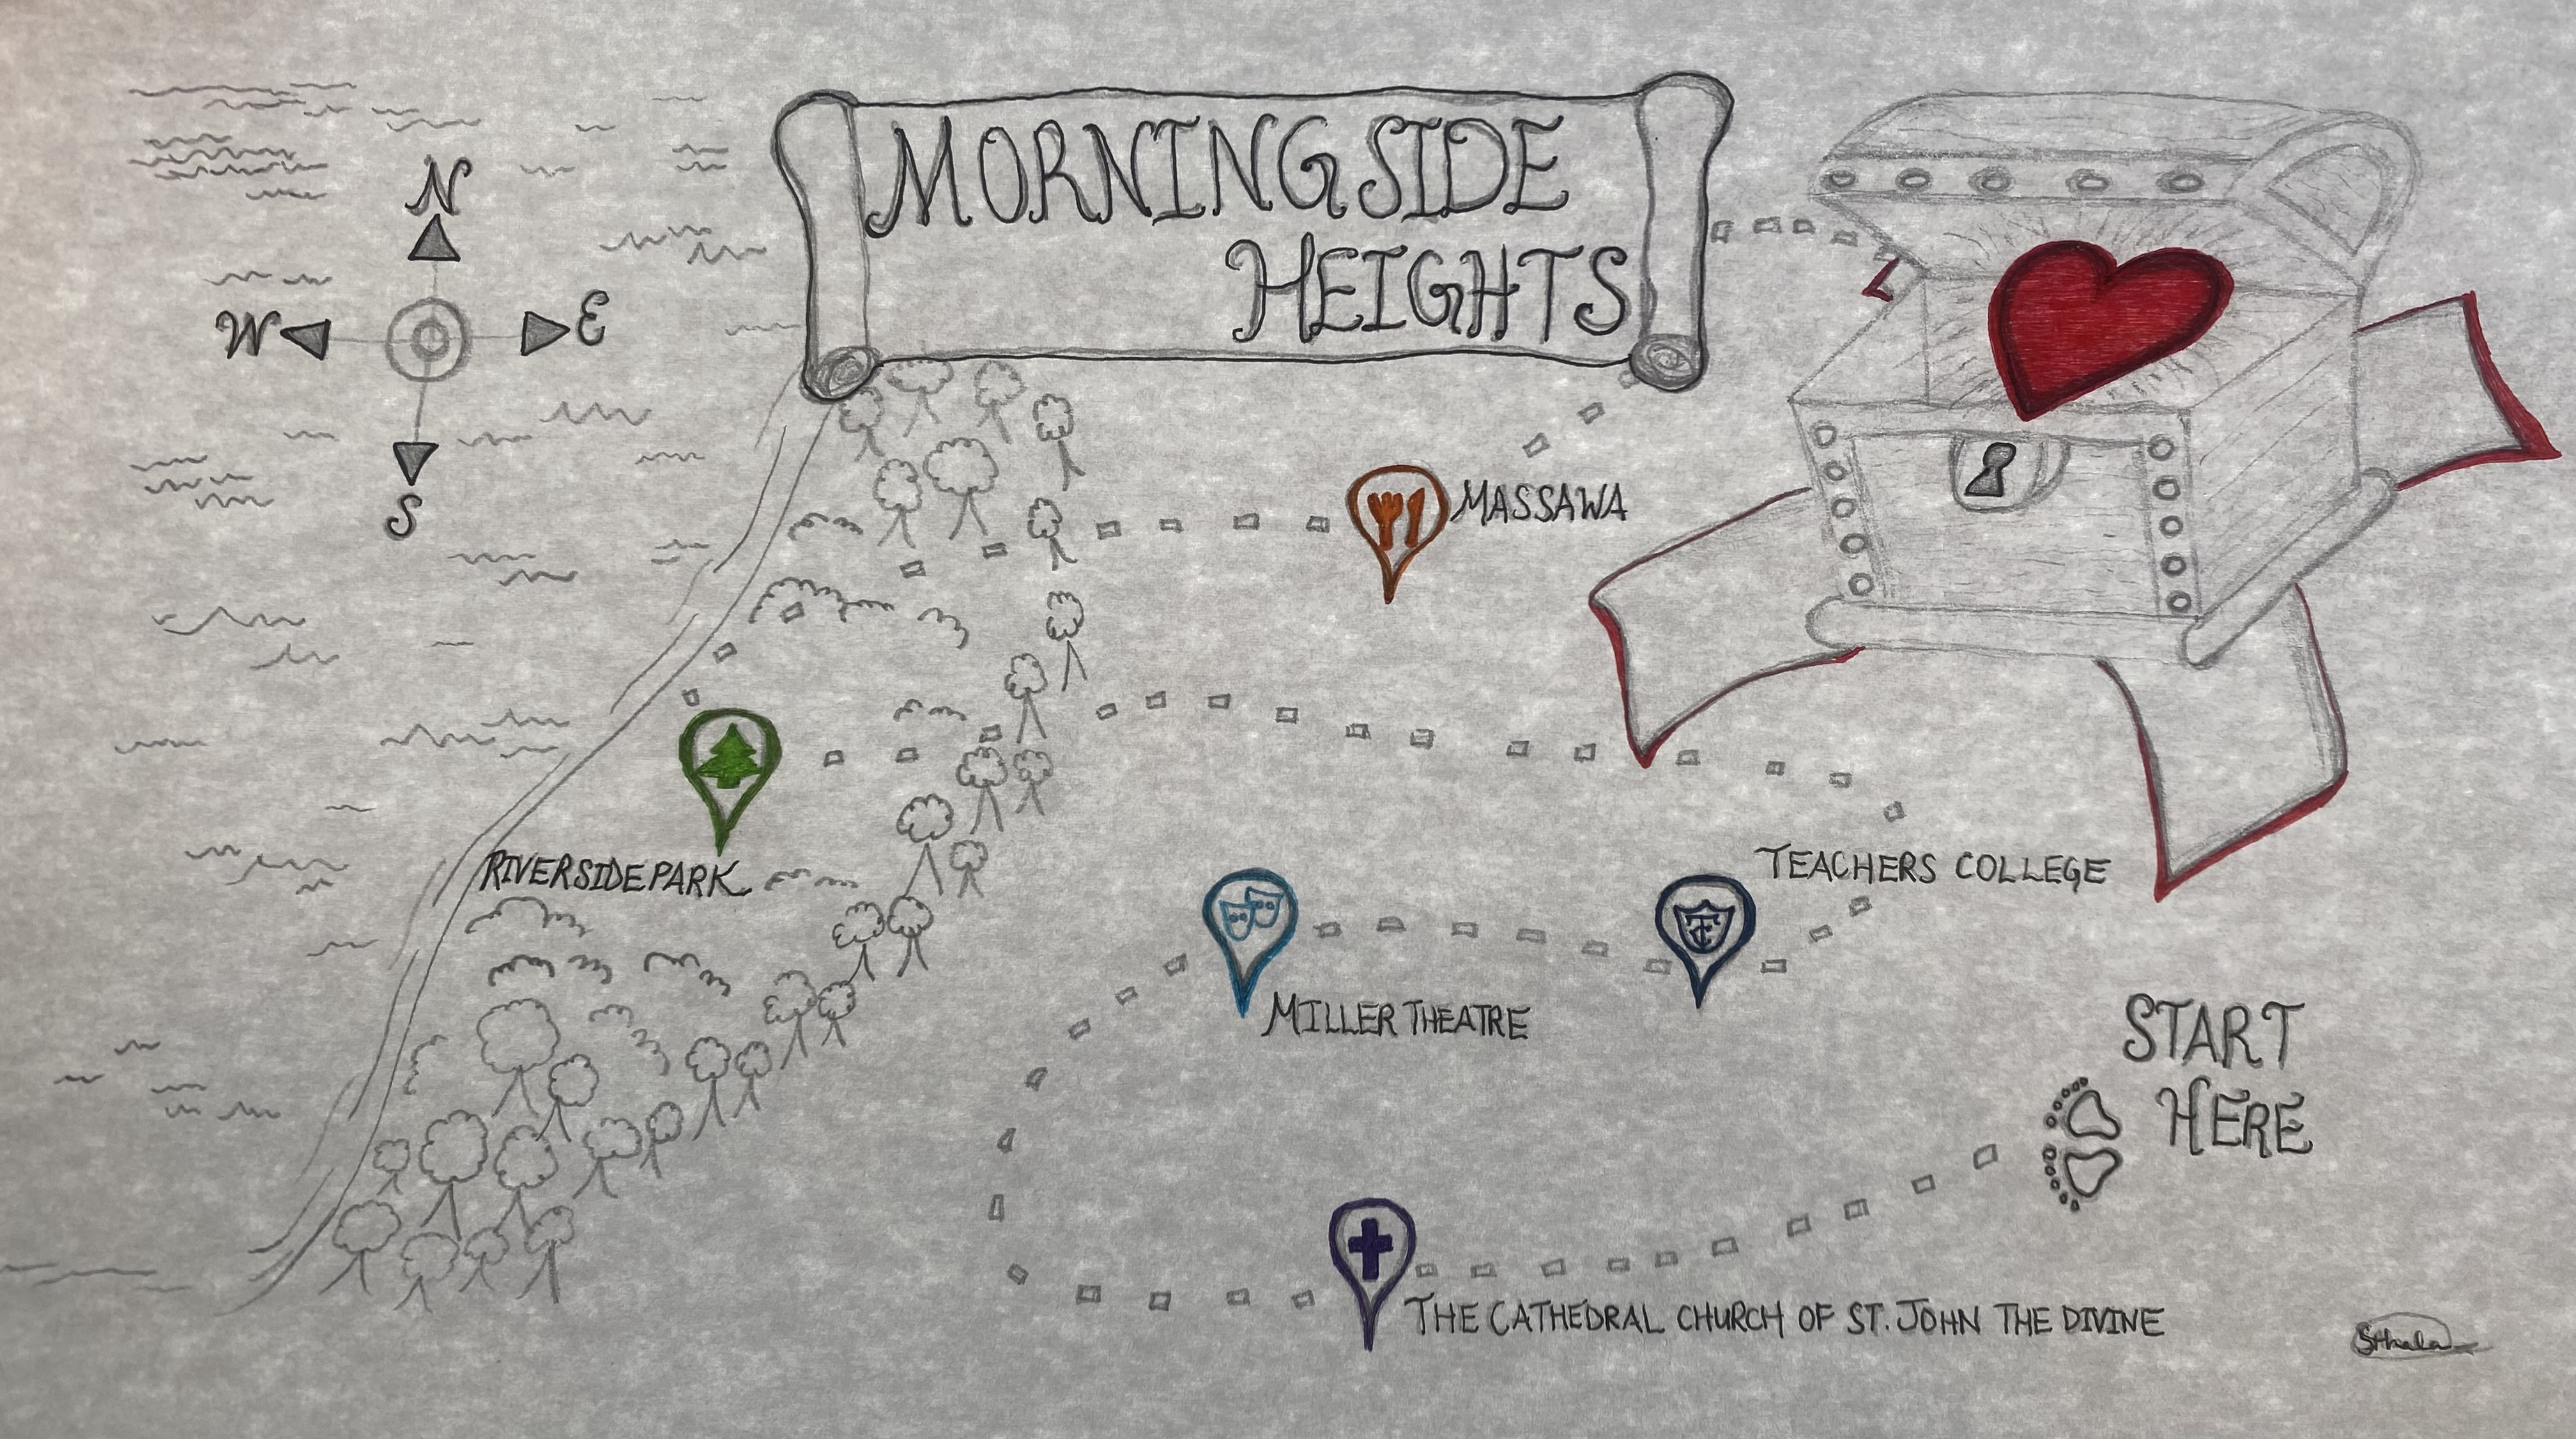 MORNINGSIDE
HEIGHTS
N
W
E
S
MASSAWA
RIVERSIDE PARK
TEACHERS COLLEGE
TC
MILLER THEATRE
START
HERE
THE CATHEDRAL CHURCH OF ST. JOHN THE DIVINE